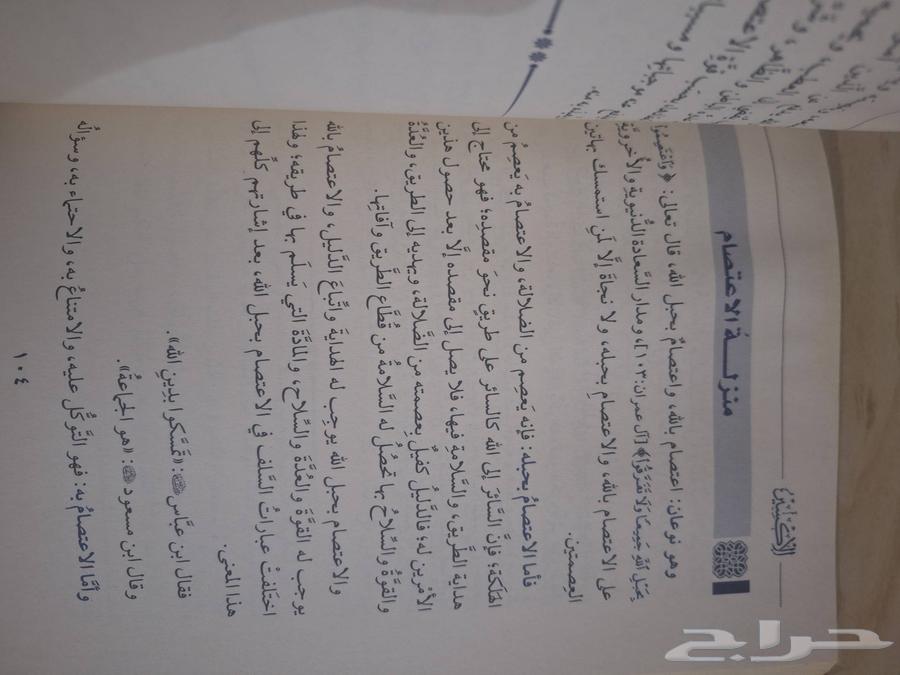 منزلـــةُ الاعتصام
وهو نوعان: اعتصام بالله، واعتصامٌ بحبل الله، قال تعالى: ﴿وَٱعْتَصِمُوا۟
بِحَبْلِ ٱللَّهِ جَمِيعًا وَلَا تَفَرَّقُوا۟﴾ [آل عمران: ١٠٣]، ومدار السَّعادة الدُّنيوية والأُخرويَّةِ
على الاعتصام بالله، والاعتصام بحبله، ولا نجاةَ إلَّا لمَنِ استمسك بهاتين
العِصمتين.
فأما الاعتصامُ بحبله: فإنه يَعصِم من الضلالة، والاعتصامُ به يَعصِمُ من
الهَلَكة؛ فإنَّ السَّائرَ إلى الله كالسائر على طريقٍ نحوَ مقصدِه؛ فهو محتاج إلى
هداية الطَّريق، والسَّلامة فيها، فلا يصل إلى مقصده إلَّا بعد حصول هذين
الأمرين له؛ فالدَّليلُ كفيلٌ بعِصمته من الضَّلالة، ويهديه إلى الطريق، والعُدَّةُ
والقوَّةُ والسِّلاحُ بها تحصُلُ له السَّلامةُ من قُطَّاع الطَّريق وآفاتِها.
والاعتصام بحبل الله يوجب له الهدايةَ واتِّباعَ الدَّليل، والاعتصامُ بالله
يوجب له القوَّةَ والعُدَّةَ والسِّلاحَ، والمادَّةَ التي يَسلَم بها في طريقه؛ ولهذا
اختلفتْ عباراتُ السَّلف في الاعتصام بحبل الله، بعد إشارتهم كلِّهم إلى
هذا المعنى.
فقال ابن عبَّاس رضي الله عنه: «تَمسَّكوا بدِينِ الله».
وقال ابن مسعود رضي الله عنه: «هو الجماعةُ».
وأمَّا الاعتصامُ به: فهو التَّوكُّل عليه، والامتناعُ به، والاحتماء به، وسؤالُه
١٠٤
حراج